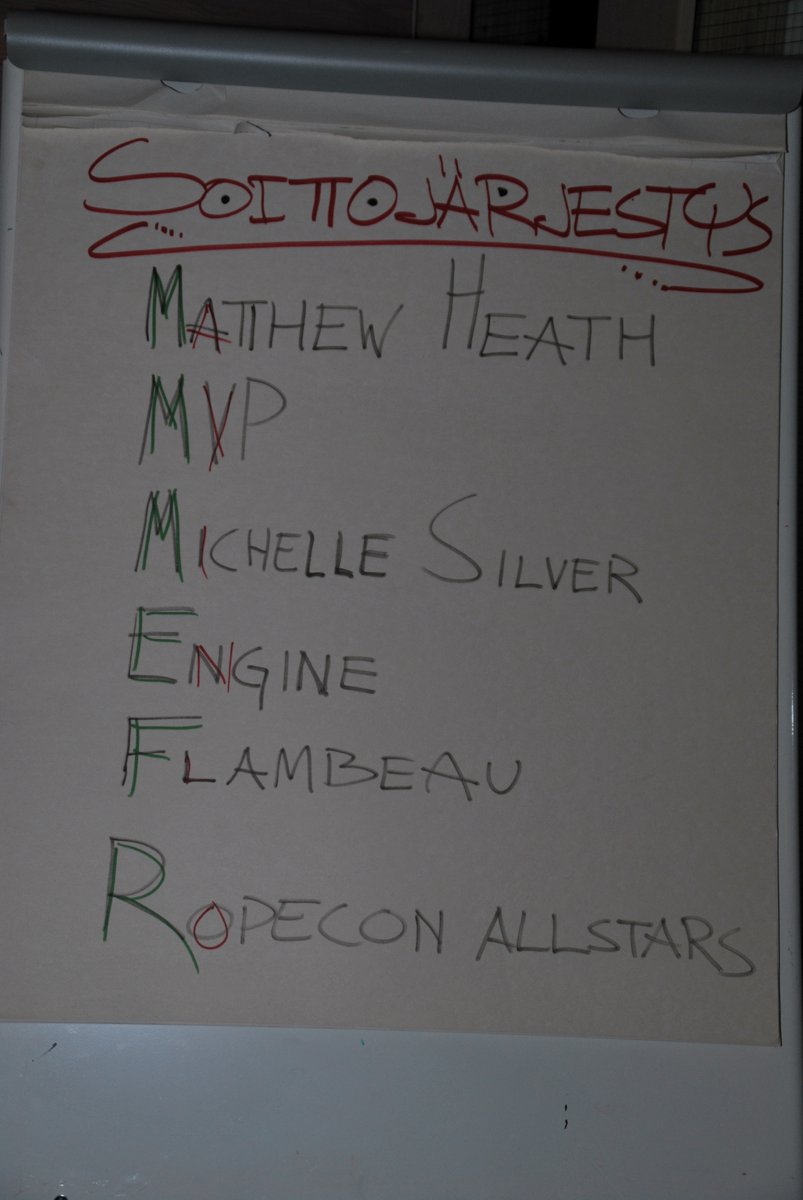 SOITTOJÄRJESTYS
MATTHEW HEATH
MVP
MICHELLE SILVER
ENGINE
FLAMBEAU
ROPECON ALLSTARS